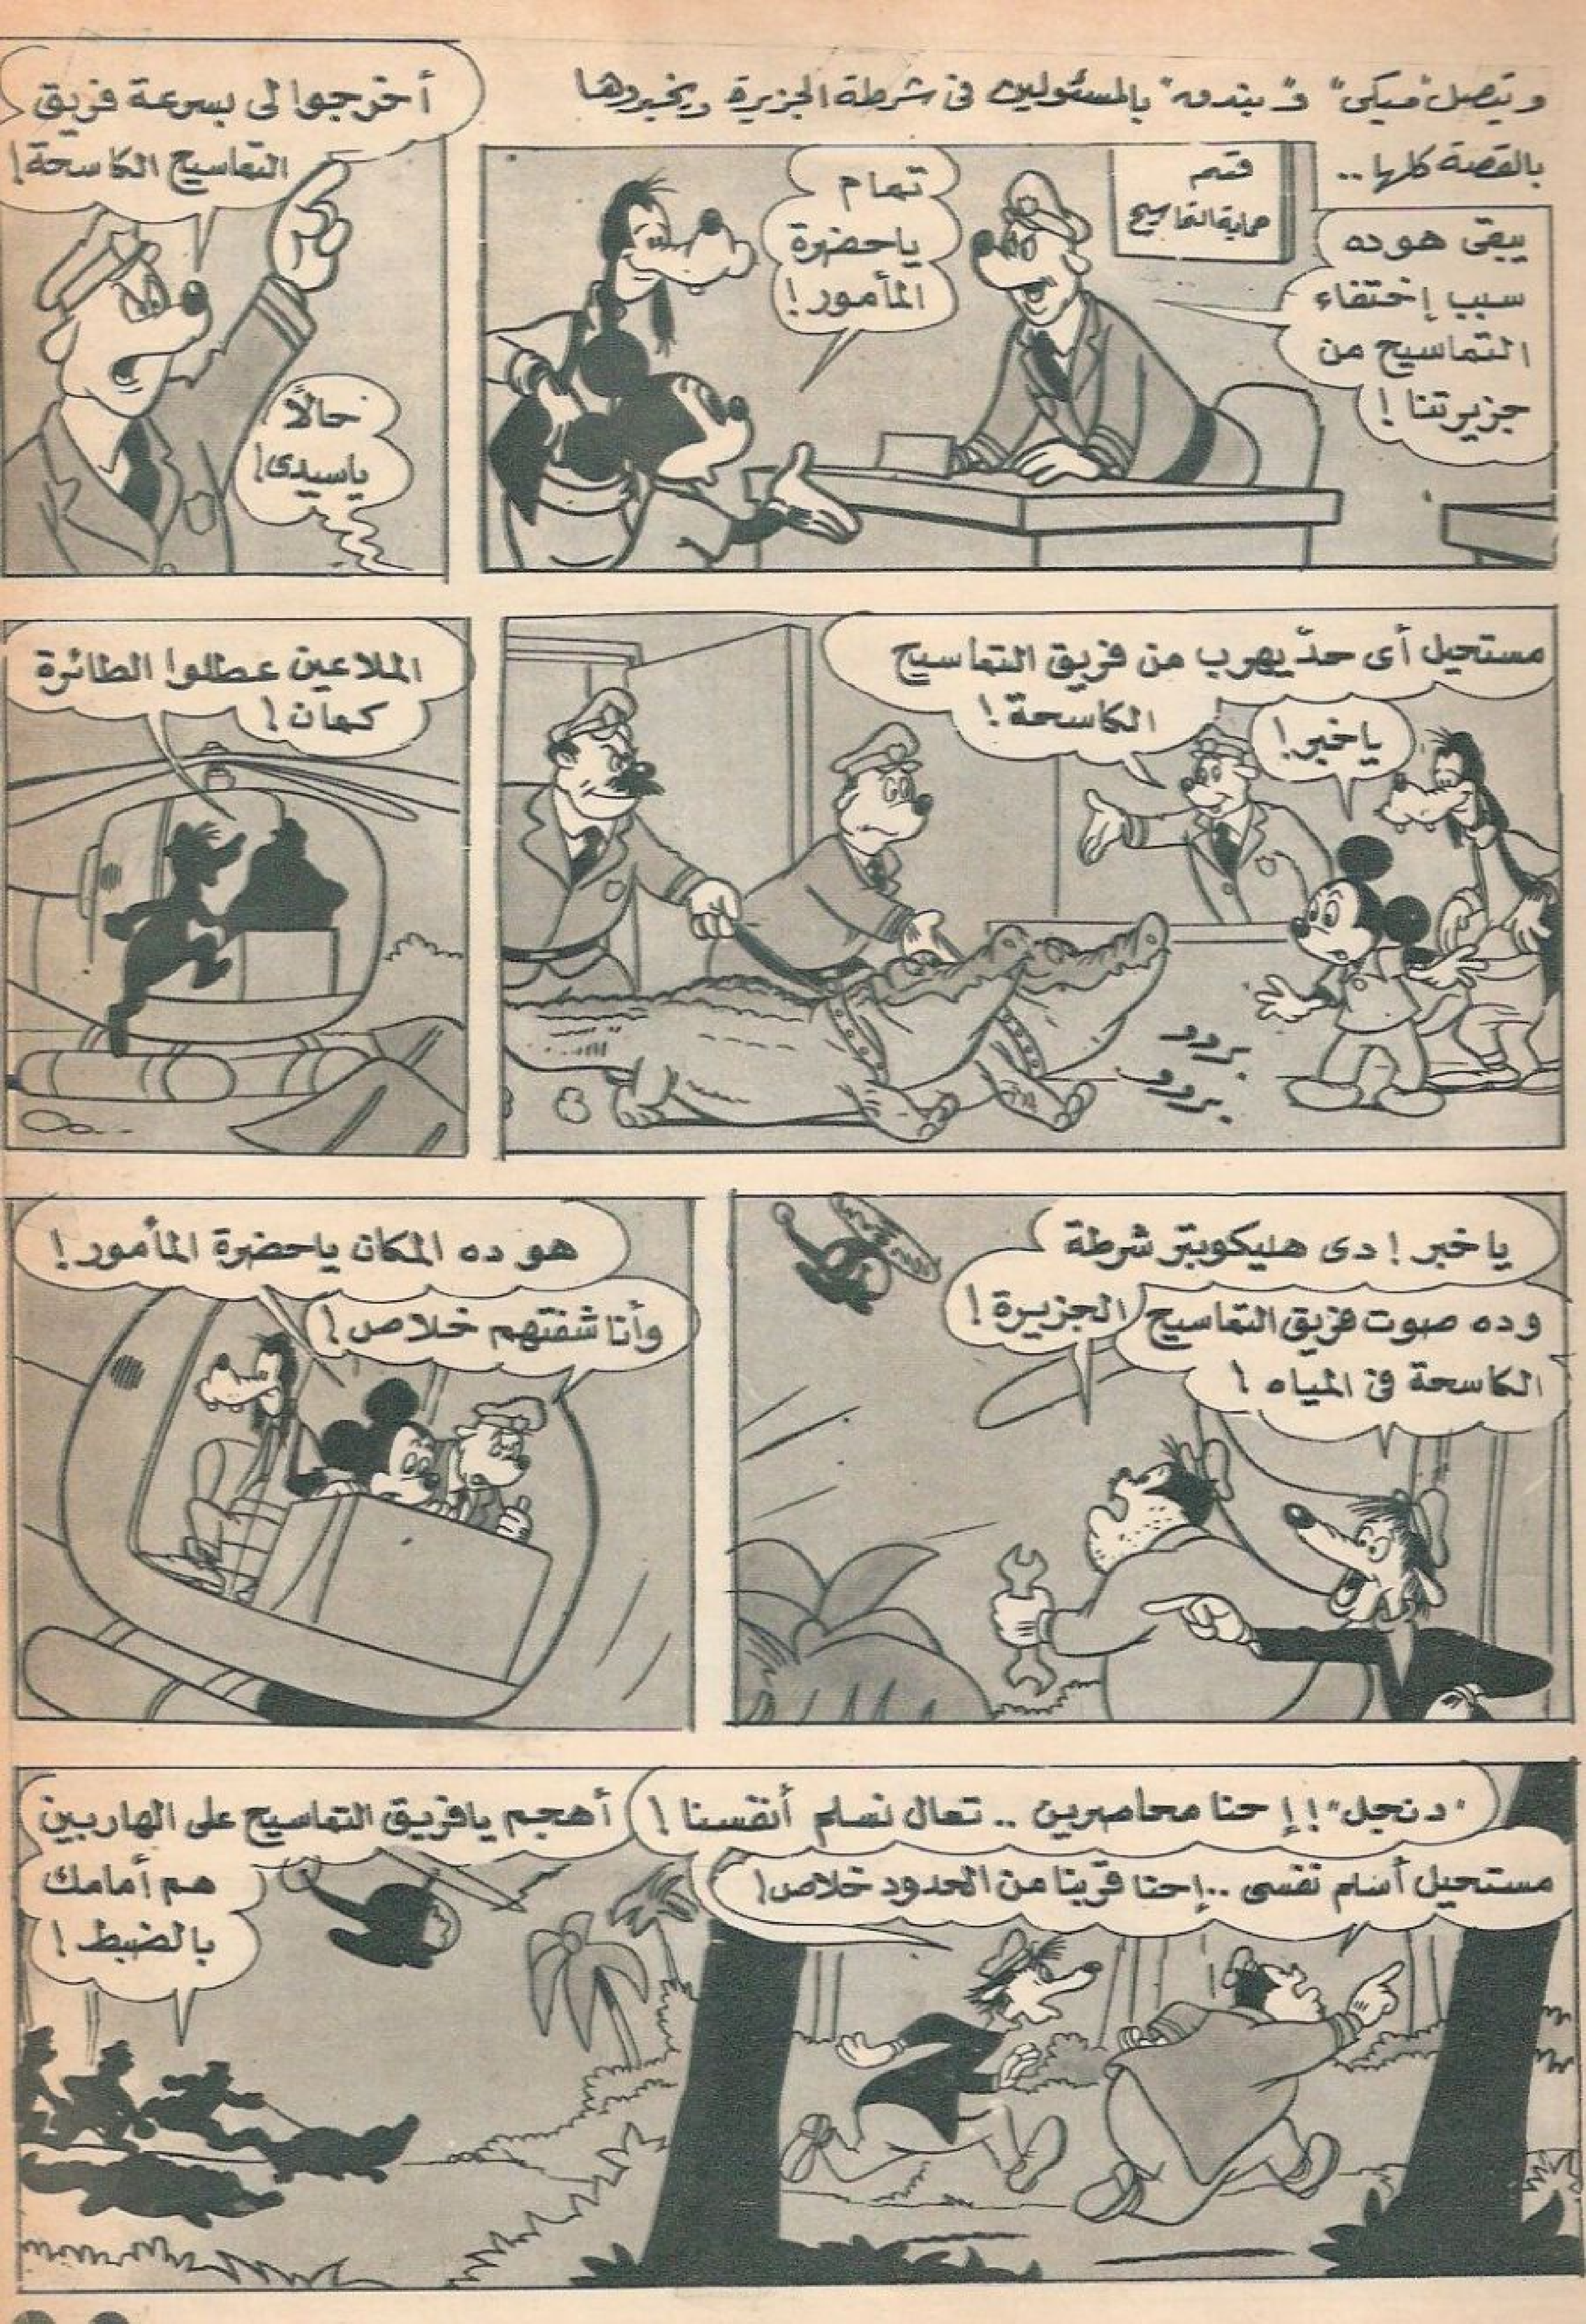 وتتصل "ميكى" و "بندق" بالمسئولين فى شرطة الجزيرة ويخبروها
بالقصة كلها..
قسم
حماية التماسيح
يبقى هو ده
سبب إختفاء
التماسيح من
جزيرتنا!
تمام
ياحضرة
المأمور!
أخرجوا لى بسرعة فريق
التماسيح الكاسحة!
حالاً
ياسيدى!
مستحيل أى حدّ يهرب من فريق التماسيح
الكاسحة!
ياخبر!
بروو
بروو
الملاعين عطلوا الطائرة
كمان!
يا خبر! دى هليكوبتر شرطة
الجزيرة!
وده صوت فريق التماسيح
الكاسحة فى المياه!
هو ده المكان ياحضرة المأمور!
وأنا شفتهم خلاص!
"دنجل"! إحنا محاصرين .. تعال نسلم أنفسنا!
مستحيل أسلم نفسى ..إحنا قربنا من الحدود خلاص!
أهجم يافريق التماسيح على الهاربين
هم أمامك
بالضبط!